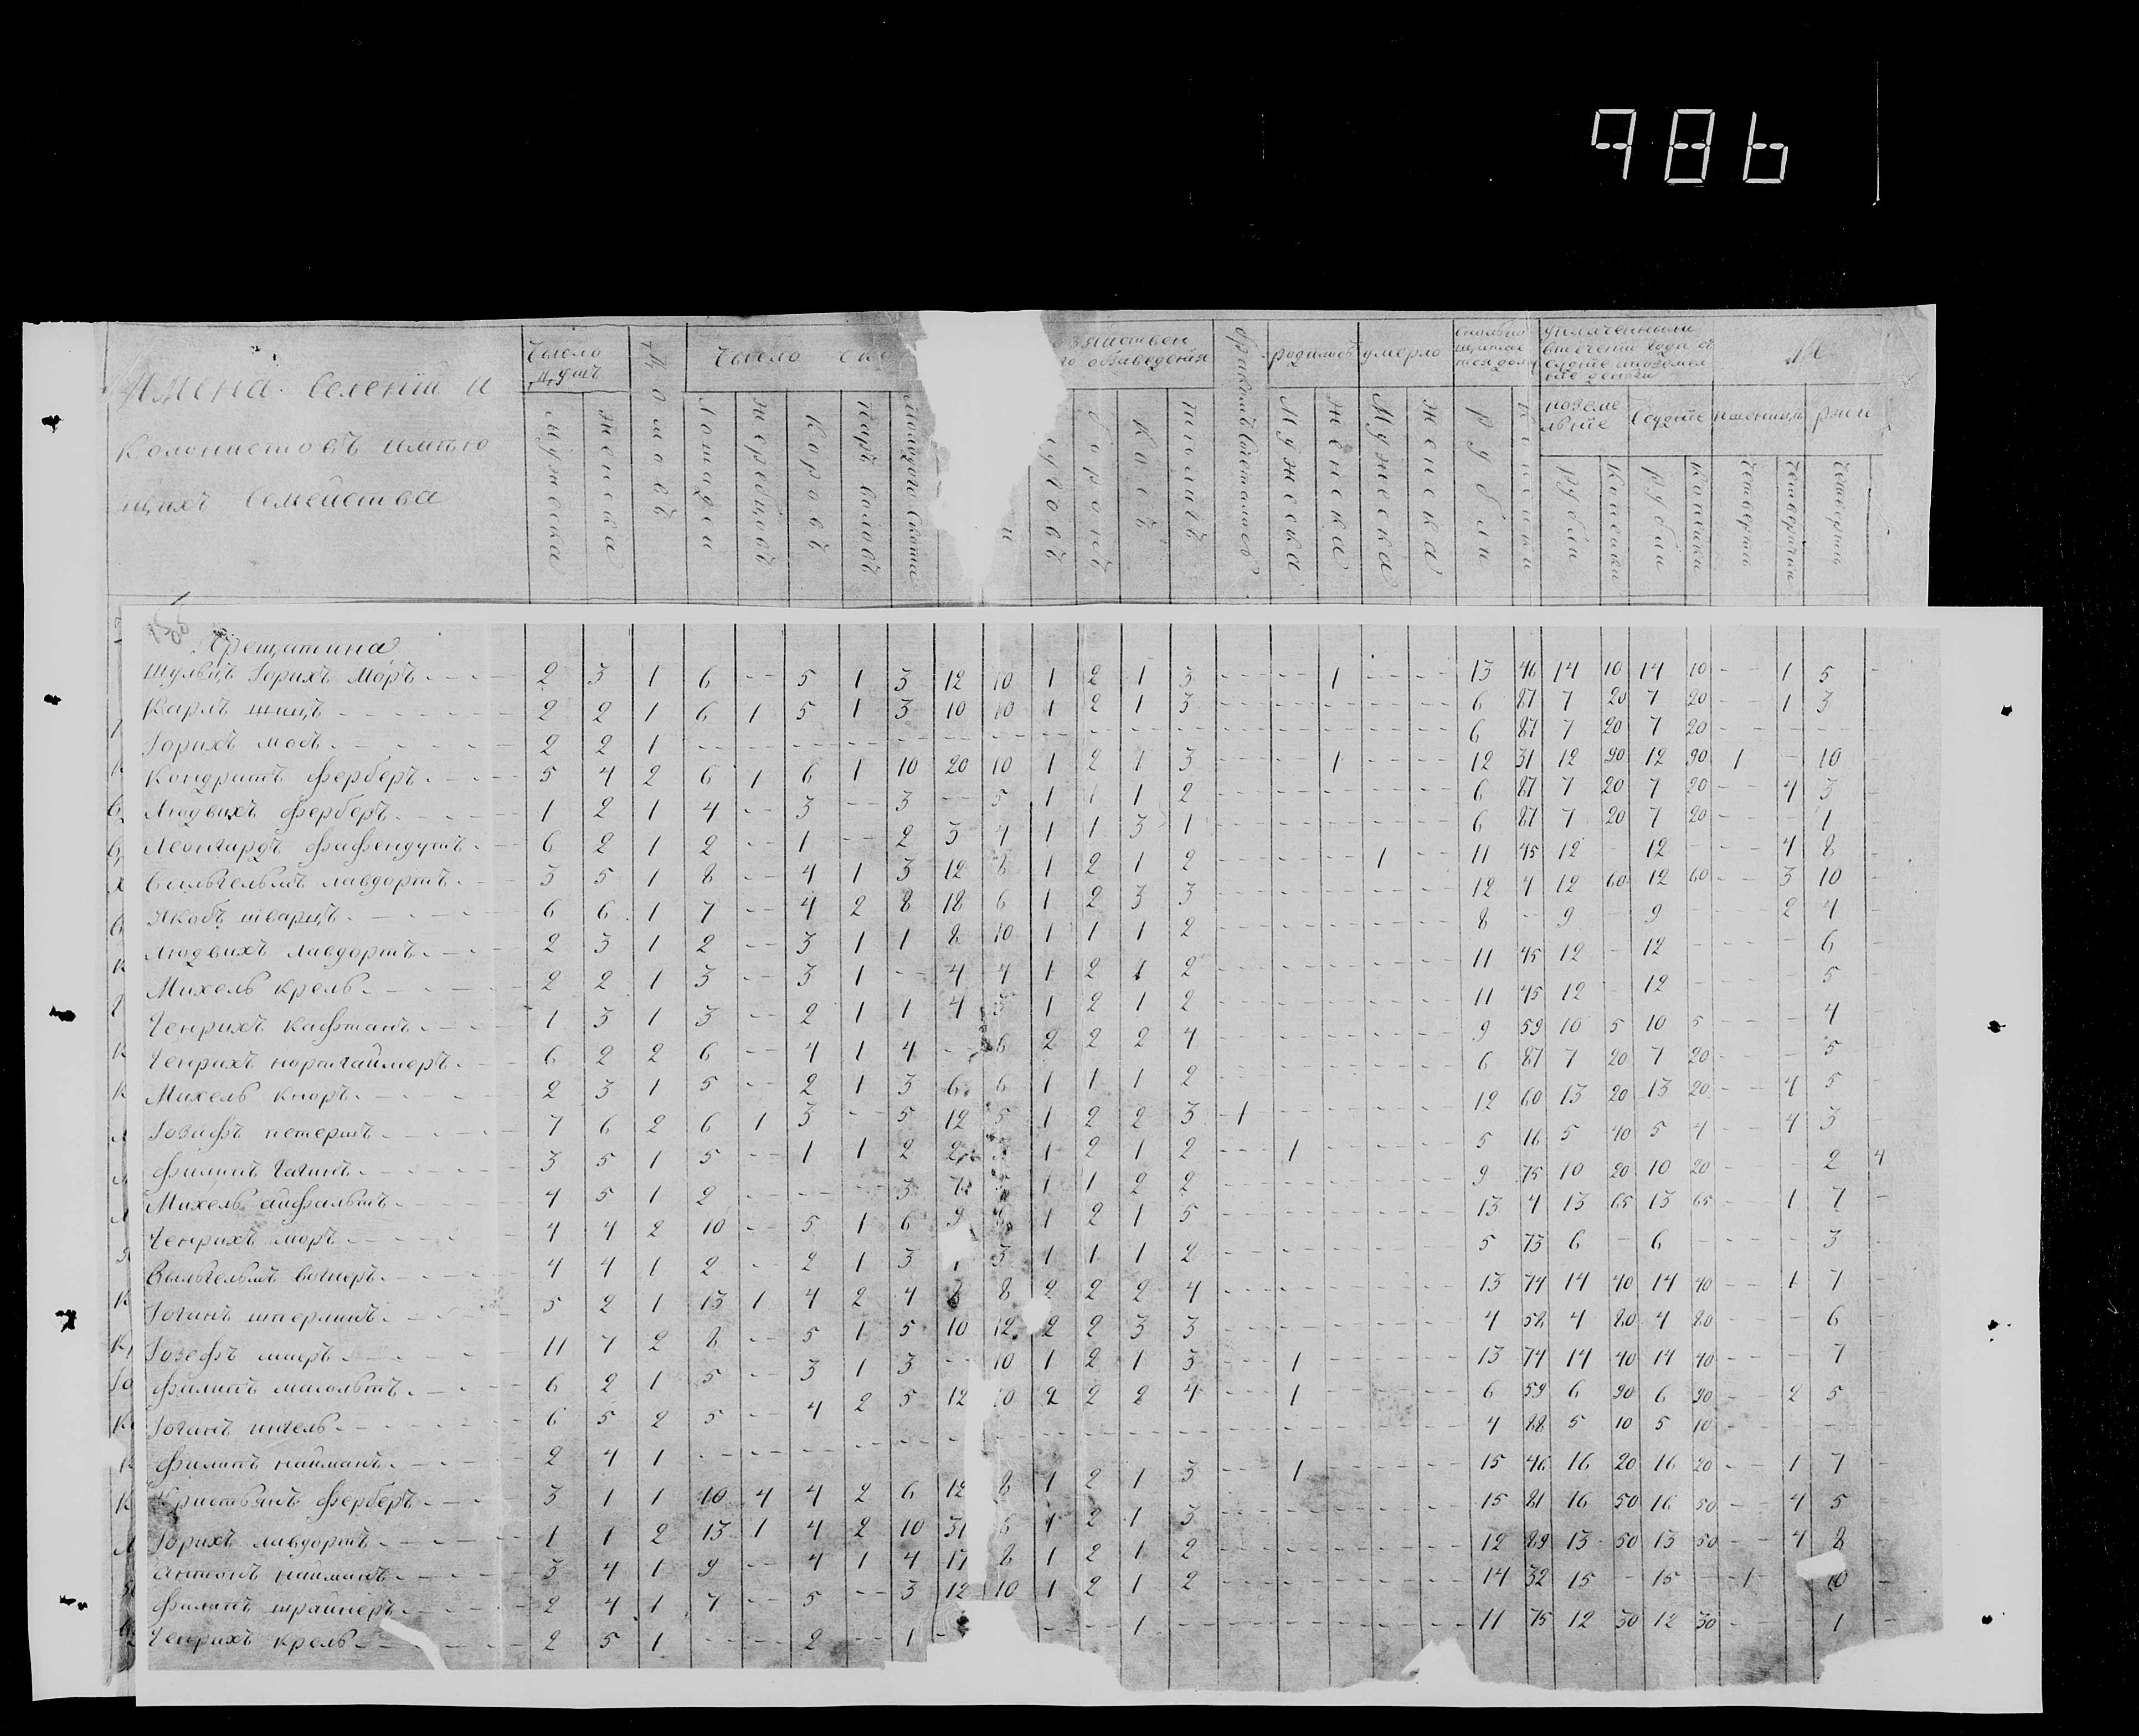 986
Имена Селенiй и
Колонистовъ имѣю
щихъ Семейства
Число
душъ
Домовъ
Число ско
зяйствен
го обзаведенiя
родилось
умерло
мужеска
женска
Лошадей
жеребцовъ
Коровъ
Паръ воловъ
Молодого скота
боронъ
Косъ
Мужеска
женска
Мужеска
женска
Рубли
Копейки
поземе
льные
Ссудные
пшеницы
ржи
рубли
копейки
рубли
копейки
четверти
четверики
четверти
Крещатина
Шульцъ Іорихъ Моръ 2 3 1 6 -- 5 1 3 12 10 1 2 1 3 1 13 46 14 10 14 10 1 5
Карлъ шицъ 2 2 1 6 1 5 1 3 10 10 1 2 1 3 6 87 7 20 7 20 1 3
Іорихъ мосъ 2 2 1 6 87 7 20 7 20
Кондратъ ферберъ 5 4 2 6 1 6 1 10 20 10 1 2 1 3 1 12 31 12 90 12 90 1 10
Людвихъ ферберъ 1 2 1 4 -- 3 -- 3 -- 5 1 1 1 2 6 87 7 20 7 20 4 3
Леонгардъ фафендутъ 6 2 1 2 -- 1 -- 2 3 4 1 1 3 1 6 87 7 20 7 20 1
Вильгельмъ лавдортъ 3 5 1 8 -- 4 1 3 12 8 1 2 1 2 1 11 45 12 12 4 8
Якобъ шварцъ 6 6 1 7 -- 4 2 8 18 6 1 2 3 3 12 4 12 60 12 60 3 10
Людвихъ лавдортъ 2 3 1 2 -- 3 1 1 8 10 1 1 1 2 8 -- 9 9 2 4
Михель крель 2 2 1 3 -- 3 1 -- 4 4 1 2 1 2 11 45 12 12 6
Генрихъ кафтанъ 1 3 1 3 -- 2 1 1 4 3 1 2 1 2 11 45 12 12 5
Генрихъ нортгаймеръ 6 2 2 6 -- 4 1 4 -- 6 2 2 2 4 9 59 10 5 10 5 4
Михель кноръ 2 3 1 5 -- 2 1 3 6 6 1 1 1 2 6 87 7 20 7 20 5
Іозифъ петертъ 7 6 2 6 1 3 -- 5 12 5 1 2 2 3 1 12 60 13 20 13 20 4 5
филипъ Гагинъ 3 5 1 5 -- 1 1 2 2 1 2 1 2 1 5 16 5 40 5 4 4 3
Михель айфальтъ 4 5 1 2 3 7 1 1 2 2 9 75 10 20 10 20 2 4
Генрихъ моръ 4 4 2 10 -- 5 1 6 9 1 2 1 5 13 4 13 65 13 65 1 7
Вильгельмъ вагнеръ 4 4 1 2 -- 2 1 3 3 1 1 1 2 5 73 6 6 3
Іоганъ штерлинъ 5 2 1 13 1 4 2 4 8 8 2 2 2 4 13 74 14 40 14 40 1 7
Іозефъ маеръ 11 7 2 8 -- 5 1 5 10 12 2 2 3 3 4 58 4 80 4 80 6
филипъ масольтъ 6 2 1 5 -- 3 1 3 -- 10 1 2 1 3 1 13 74 14 40 14 40 7
Іоганъ нигель 6 5 2 5 -- 4 2 5 12 10 2 2 2 4 1 6 59 6 90 6 90 2 5
филипъ найманъ 2 4 1 4 88 5 10 5 10
Кристьянъ ферберъ 3 1 1 10 4 4 2 6 12 8 1 2 1 3 1 15 46 16 20 16 20 1 7
Іорихъ лавдортъ 1 1 2 13 1 4 2 10 31 6 1 2 1 3 15 81 16 50 16 50 4 5
Антонъ найманъ 3 4 1 9 -- 4 1 4 17 8 1 2 1 2 12 89 13 50 13 50 4 8
филипъ шрайнеръ 2 4 1 7 -- 5 -- 3 12 10 1 2 1 2 14 32 15 15 1 10
Генрихъ крель 2 5 1 2 1 1 11 75 12 30 12 30 1